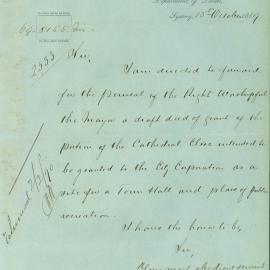 Department of Lands,
Sydney, 15th October 1889
69-8155 Ms.
2553
Sir,
I am directed to forward
for the perusal of the Right Worshipful
the Mayor a draft deed of grant of the
portion of the Cathedral Close intended to
be granted to the City Corporation as a
site for a Town Hall and place of public
recreation.
I have the honor to be,
Sir,
Your most obedient servant